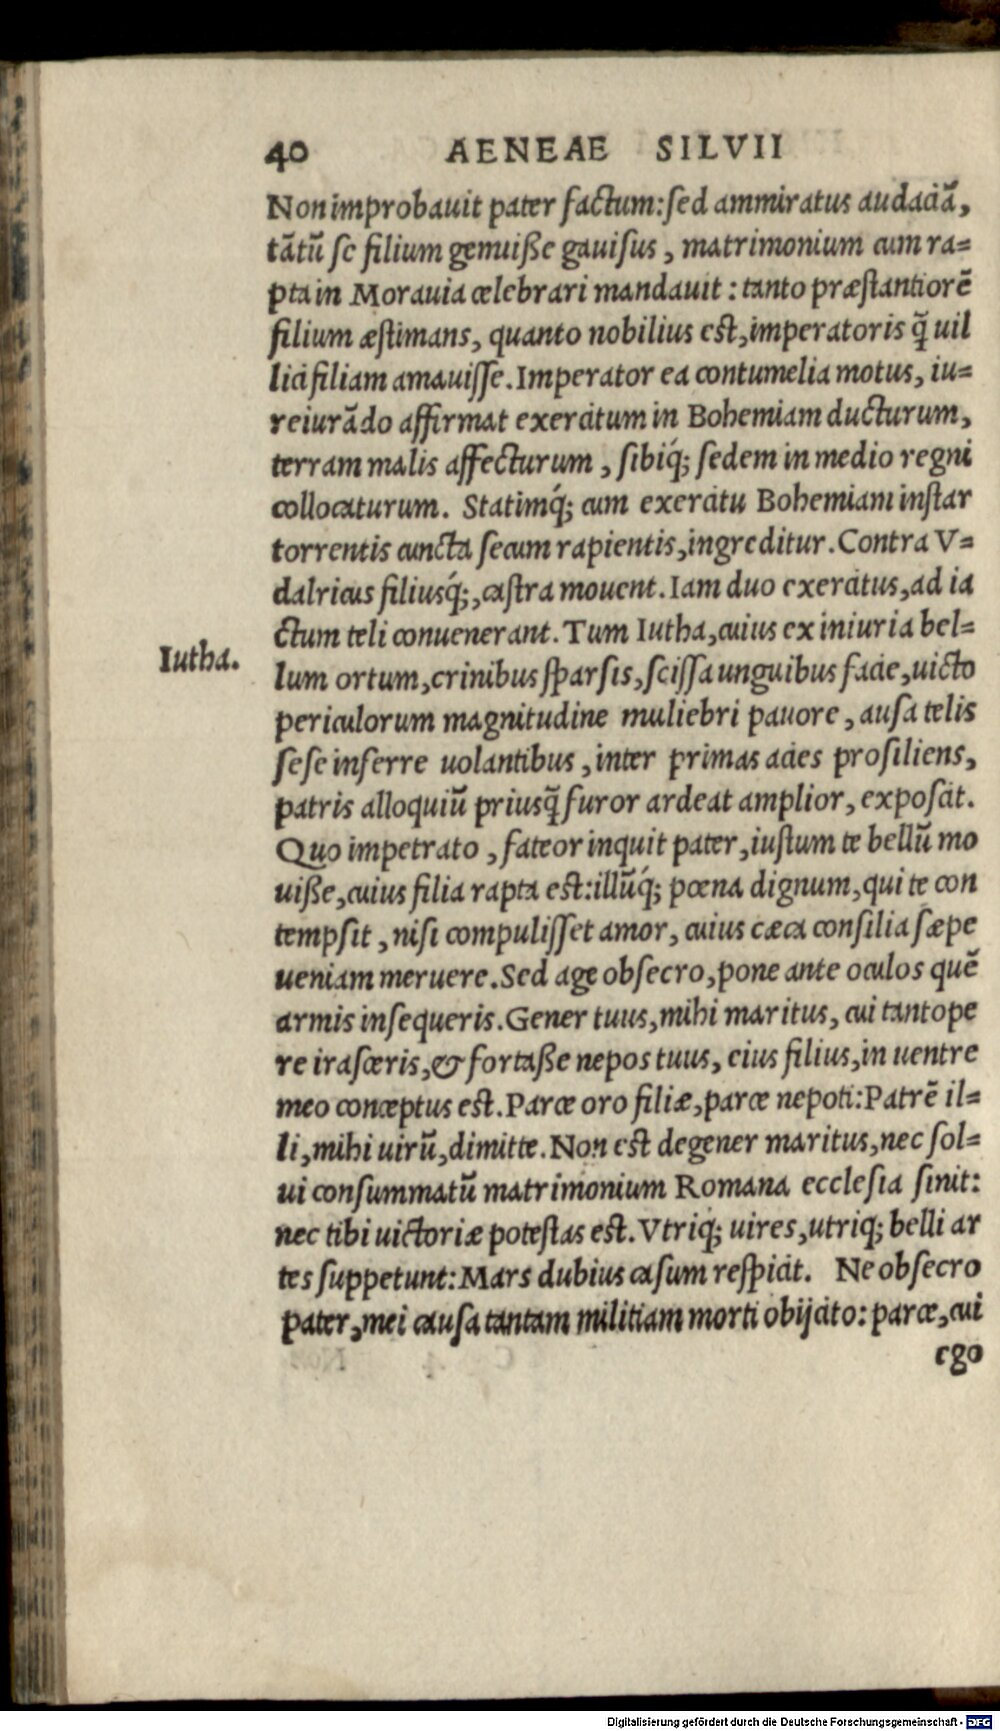 40 AENEAE SILVII
Non improbauit pater factum: sed ammiratus audaciā,
tātū se filium genuiße gauisus, matrimonium cum ra=
pta in Morauia celebrari mandauit: tanto præstantiorē
filium æstimans, quanto nobilius est, imperatoris q̃ uil
lici filiam amauisse. Imperator ea contumelia motus, iu=
reiurādo affirmat exercitum in Bohemiam ducturum,
terram malis affecturum, sibiq́; sedem in medio regni
collocaturum. Statimq́; cum exercitu Bohemiam instar
torrentis cuncta secum rapientis, ingreditur. Contra V=
dalricus filiusq́;, castra mouent. Iam duo exercitus, ad ia
ctum teli conuenerant. Tum Iutha, cuius ex iniuria bel=
Iutha.
lum ortum, crinibus sparsis, scissa unguibus facie, uicto
periculorum magnitudine muliebri pauore, ausa telis
sese inferre uolantibus, inter primas acies prosiliens,
patris alloquiū priusq̃ furor ardeat amplior, exposcit.
Quo impetrato, fateor inquit pater, iustum te bellū mo
uiße, cuius filia rapta est: illūq́; pœna dignum, qui te con
tempsit, nisi compulisset amor, cuius cæca consilia sæpe
ueniam meruere. Sed age obsecro, pone ante oculos quē
armis insequeris. Gener tuus, mihi maritus, cui tantope
re irasceris, & fortaße nepos tuus, eius filius, in uentre
meo conceptus est. Parce oro filiæ, parce nepoti: Patrē il=
li, mihi uirū, dimitte. Non est degener maritus, nec sol=
ui consummatū matrimonium Romana ecclesia sinit:
nec tibi uictoriæ potestas est. Vtriq; uires, utriq; belli ar
tes suppetunt: Mars dubius casum respicit. Ne obsecro
pater, mei causa tantam militiam morti obijcito: parce, cui
ego
Digitalisierung gefördert durch die Deutsche Forschungsgemeinschaft - DFG